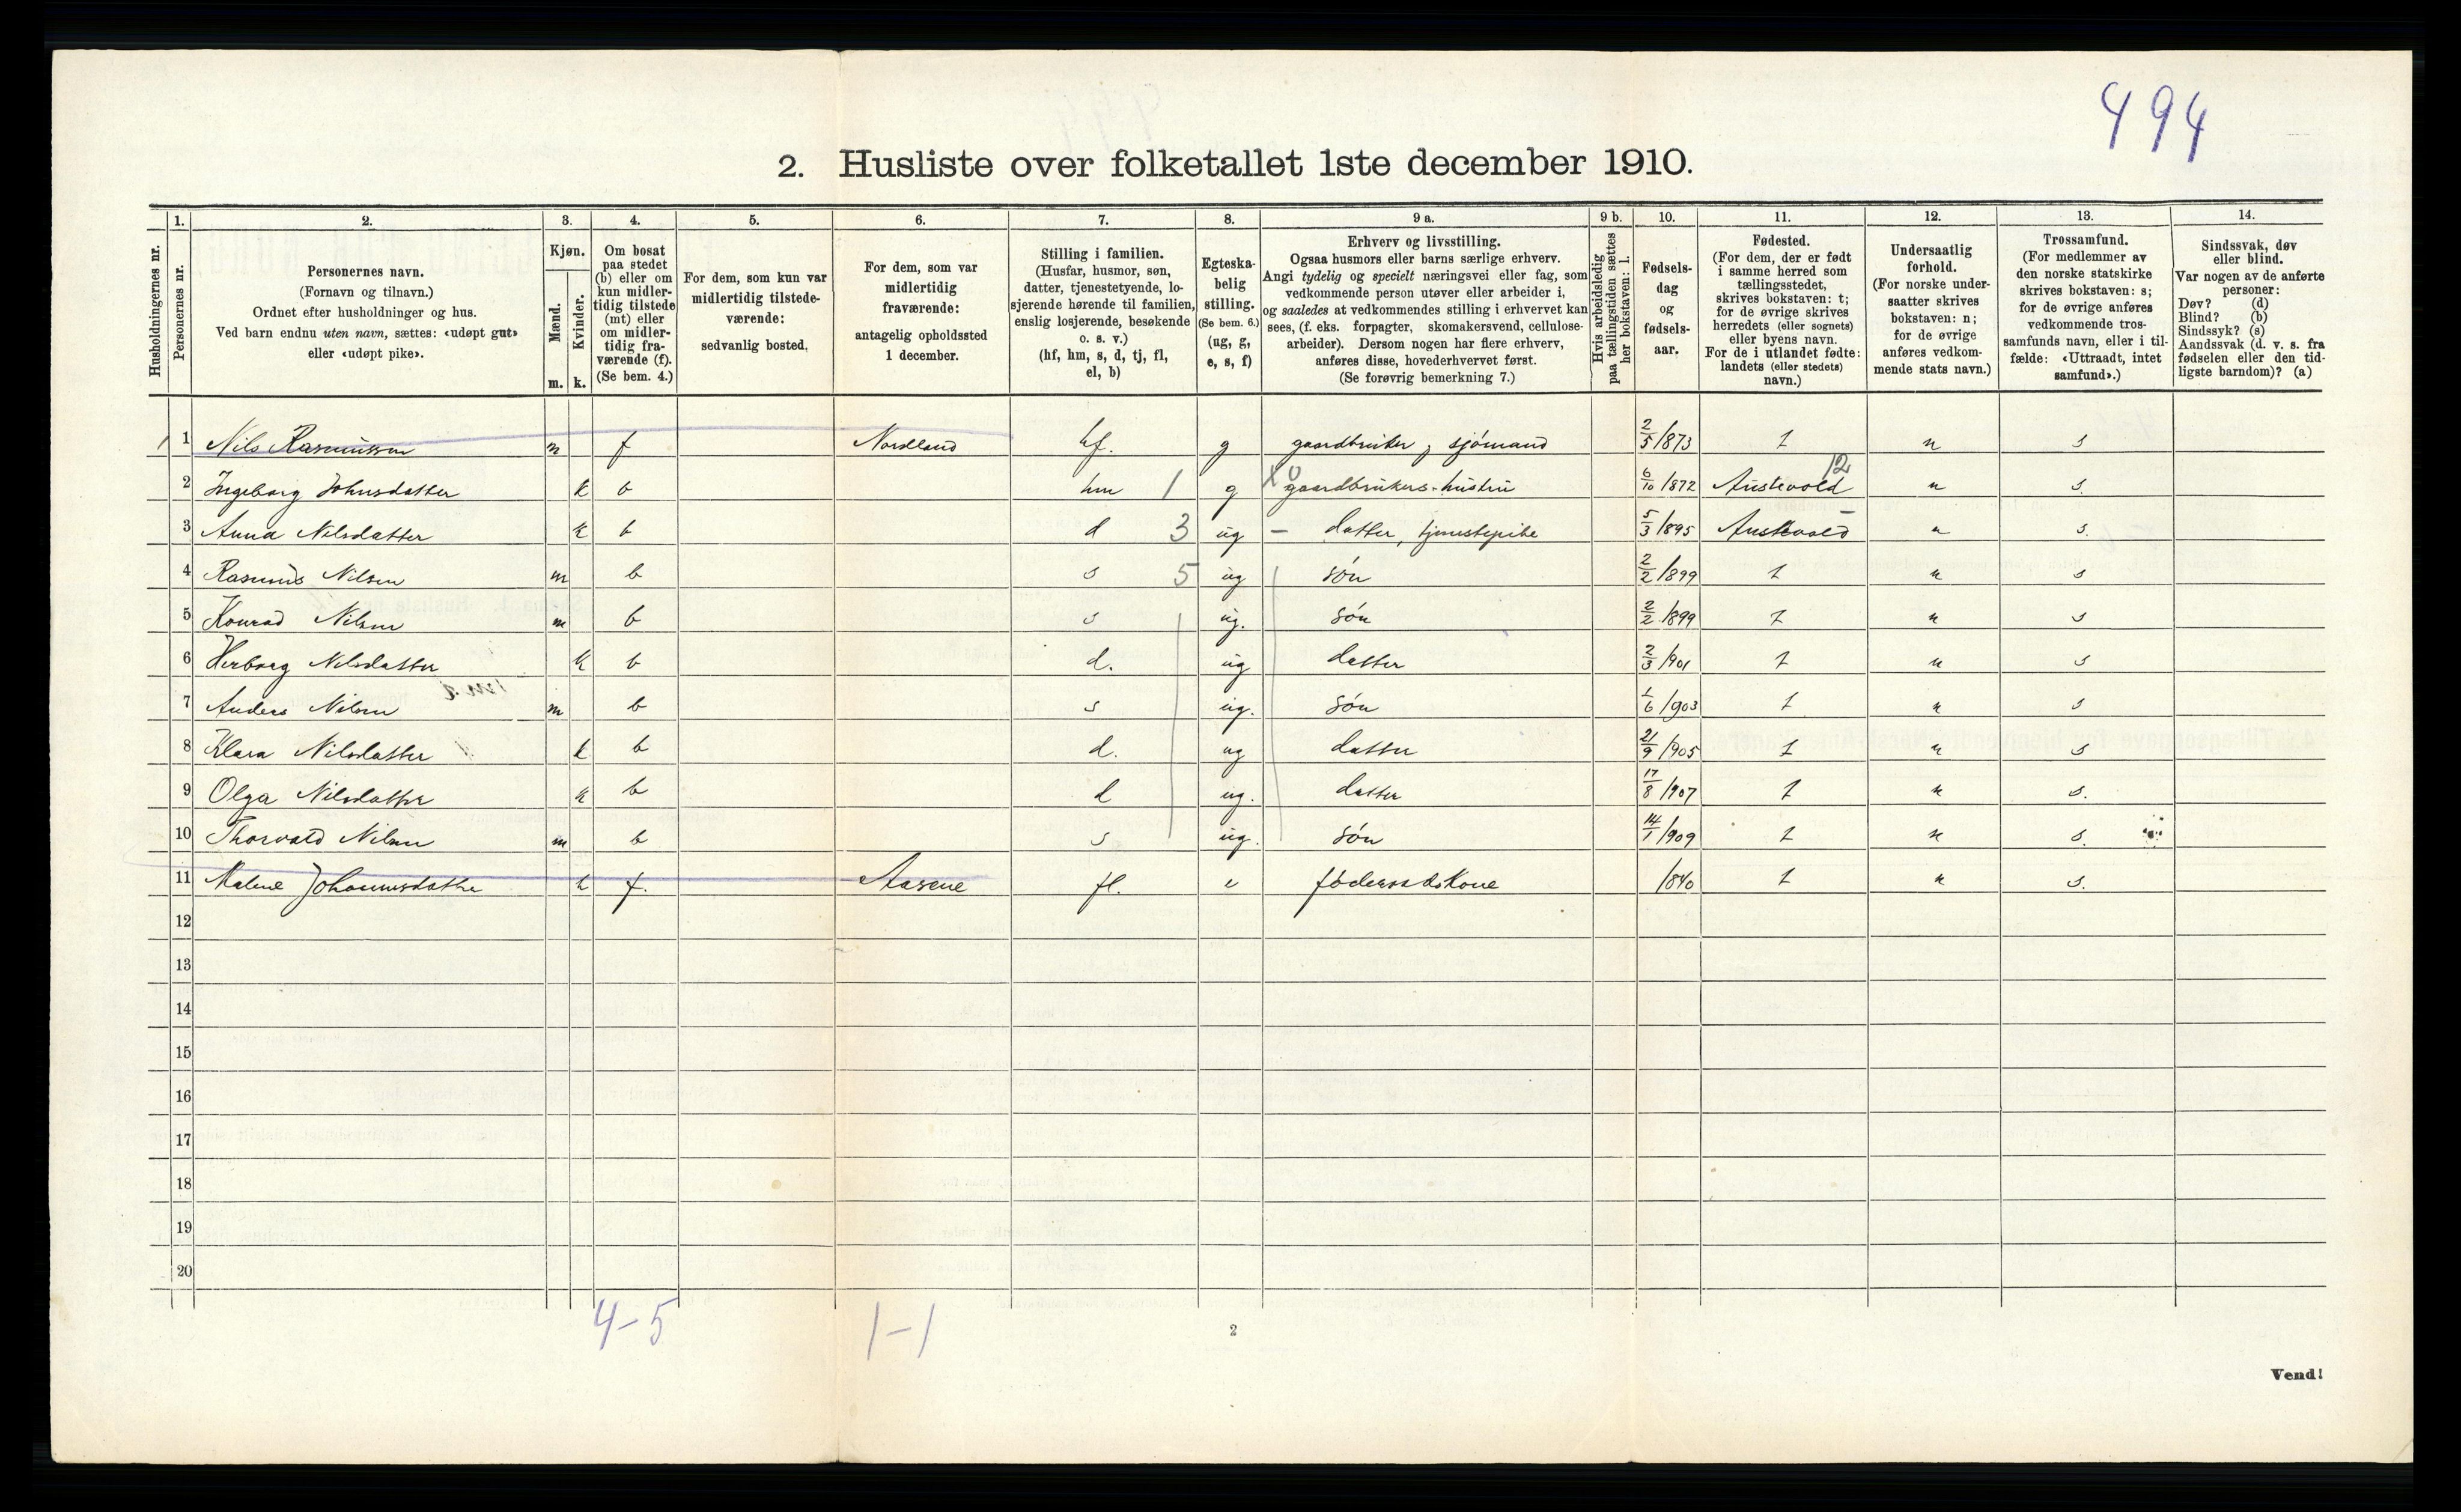 494
2. Husliste over folketallet 1ste december 1910.
Husholdningernes nr.
1. Personernes nr.
2. Personernes navn.
(Fornavn og tilnavn.)
Ordnet efter husholdninger og hus.
Ved barn endnu uten navn, sættes: «udøpt gut»
eller «udøpt pike».
3. Kjøn.
Mænd. m.
Kvinder. k.
4. Om bosat
paa stedet
(b) eller om
kun midler-
tidig tilstede
(mt) eller
om midler-
tidig fra-
værende (f).
(Se bem. 4.)
5. For dem, som kun var
midlertidig tilstede-
værende:
sedvanlig bosted.
6. For dem, som var
midlertidig
fraværende:
antagelig opholdssted
1 december.
7. Stilling i familien.
(Husfar, husmor, søn,
datter, tjenestetyende, lo-
sjerende hørende til familien,
enslig losjerende, besøkende
o. s. v.)
(hf, hm, s, d, tj, fl,
el, b)
8. Egteska-
belig
stilling.
(Se bem. 6.)
(ug, g,
e, s, f)
9 a. Erhverv og livsstilling.
Ogsaa husmors eller barns særlige erhverv.
Angi tydelig og specielt næringsvei eller fag, som
vedkommende person utøver eller arbeider i,
og saaledes at vedkommendes stilling i erhvervet kan
sees, (f. eks. forpagter, skomakersvend, cellulose-
arbeider). Dersom nogen har flere erhverv,
anføres disse, hovederhvervet først.
(Se forøvrig bemerkning 7.)
9 b. Hvis arbeidsledig
paa tællingstiden sættes
her bokstaven: l.
10. Fødsels-
dag
og
fødsels-
aar.
11. Fødested.
(For dem, der er født
i samme herred som
tællingsstedet,
skrives bokstaven: t;
for de øvrige skrives
herredets (eller sognets)
eller byens navn.
For de i utlandet fødte:
landets (eller stedets)
navn.)
12. Undersaatlig
forhold.
(For norske under-
saatter skrives
bokstaven: n;
for de øvrige
anføres vedkom-
mende stats navn.)
13. Trossamfund.
(For medlemmer av
den norske statskirke
skrives bokstaven: s;
for de øvrige anføres
vedkommende tros-
samfunds navn, eller i til-
fælde: «Uttraadt, intet
samfund».)
14. Sindssvak, døv
eller blind.
Var nogen av de anførte
personer:
Døv? (d)
Blind? (b)
Sindssyk? (s)
Aandssvak (d. v. s. fra
fødselen eller den tid-
ligste barndom)? (a)
1 1 Nils Rasmussen m f Nordland hf. g gaardbruker, sjómand 2/5 1873 t n s
2 Ingeborg Johnsdatter k b hm 1 g x0 gaardbrukers-hustru 6/10 1872 Austevold 12 n s.
3 Anna Nilsdatter k b d 3 ug – datter, tjenestepike 5/3 1895 Austevold – n s.
4 Rasmus Nilsen m b s 5 ug són 2/2 1899 t n s
5 Konrad Nilsen m b s ug. són 2/2 1899 t n s
6 Herborg Nilsdatter k b d. ug datter 2/3 1901 t n s
7 Anders Nilsen m b s ug. són 1/6 1903 t n s
8 Klara Nilsdatter k b d. ug datter 21/9 1905 t n s
9 Olga Nilsdatter k b d ug. datter 17/8 1907 t n s.
10 Thorvald Nilsen m b s ug. són 14/1 1909 t n s.
11 Malene Johannesdatter k f. Aasene fl. e føderaadskone 1840 t n s.
12
13
14
15
16
17
18
19
20
4-5 1-1
2
Vend!